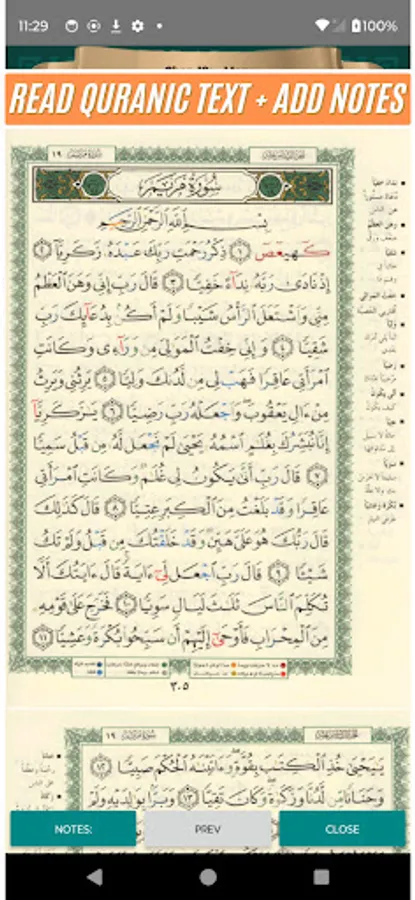 11:29
100%
READ QURANIC TEXT + ADD NOTES
١٩
سُورَةُ مَرْيَمَ
بِسْمِ ٱللَّهِ ٱلرَّحْمَٰنِ ٱلرَّحِيمِ
كٓهيعٓصٓ ١ ذِكْرُ رَحْمَتِ رَبِّكَ عَبْدَهُۥ زَكَرِيَّآ ٢
إِذْ نَادَىٰ رَبَّهُۥ نِدَآءً خَفِيًّا ٣ قَالَ رَبِّ إِنِّي وَهَنَ ٱلْعَظْمُ
مِنِّي وَٱشْتَعَلَ ٱلرَّأْسُ شَيْبًا وَلَمْ أَكُنۢ بِدُعَآئِكَ رَبِّ
شَقِيًّا ٤ وَإِنِّي خِفْتُ ٱلْمَوَٰلِيَ مِن وَرَآءِي وَكَانَتِ
ٱمْرَأَتِي عَاقِرًا فَهَبْ لِي مِن لَّدُنكَ وَلِيًّا ٥ يَرِثُنِي وَيَرِثُ
مِنْ ءَالِ يَعْقُوبَ ۖ وَٱجْعَلْهُ رَبِّ رَضِيًّا ٦ يَٰزَكَرِيَّآ
إِنَّا نُبَشِّرُكَ بِغُلَٰمٍ ٱسْمُهُۥ يَحْيَىٰ لَمْ نَجْعَل لَّهُۥ مِن قَبْلُ سَمِيًّا
٧ قَالَ رَبِّ أَنَّىٰ يَكُونُ لِي غُلَٰمٌ وَكَانَتِ ٱمْرَأَتِي
عَاقِرًا وَقَدْ بَلَغْتُ مِنَ ٱلْكِبَرِ عِتِيًّا ٨ قَالَ كَذَٰلِكَ
قَالَ رَبُّكَ هُوَ عَلَيَّ هَيِّنٌ وَقَدْ خَلَقْتُكَ مِن قَبْلُ وَلَمْ تَكُ
شَيْـًٔا ٩ قَالَ رَبِّ ٱجْعَل لِّيٓ ءَايَةً ۚ قَالَ ءَايَتُكَ أَلَّا
تُكَلِّمَ ٱلنَّاسَ ثَلَٰثَ لَيَالٍ سَوِيًّا ١٠ فَخَرَجَ عَلَىٰ قَوْمِهِۦ
مِنَ ٱلْمِحْرَابِ فَأَوْحَىٰٓ إِلَيْهِمْ أَن سَبِّحُوا۟ بُكْرَةً وَعَشِيًّا ١١
٣٠٥
١٩
يَٰيَحْيَىٰ خُذِ ٱلْكِتَٰبَ بِقُوَّةٍ ۖ وَءَاتَيْنَٰهُ ٱلْحُكْمَ صَبِيًّا ١٢
وَحَنَانًا مِّن لَّدُنَّا وَزَكَوٰةً ۖ وَكَانَ تَقِيًّا ١٣ وَبَرًّۢا بِوَٰلِدَيْهِ وَلَمْ
NOTES:
PREV
CLOSE